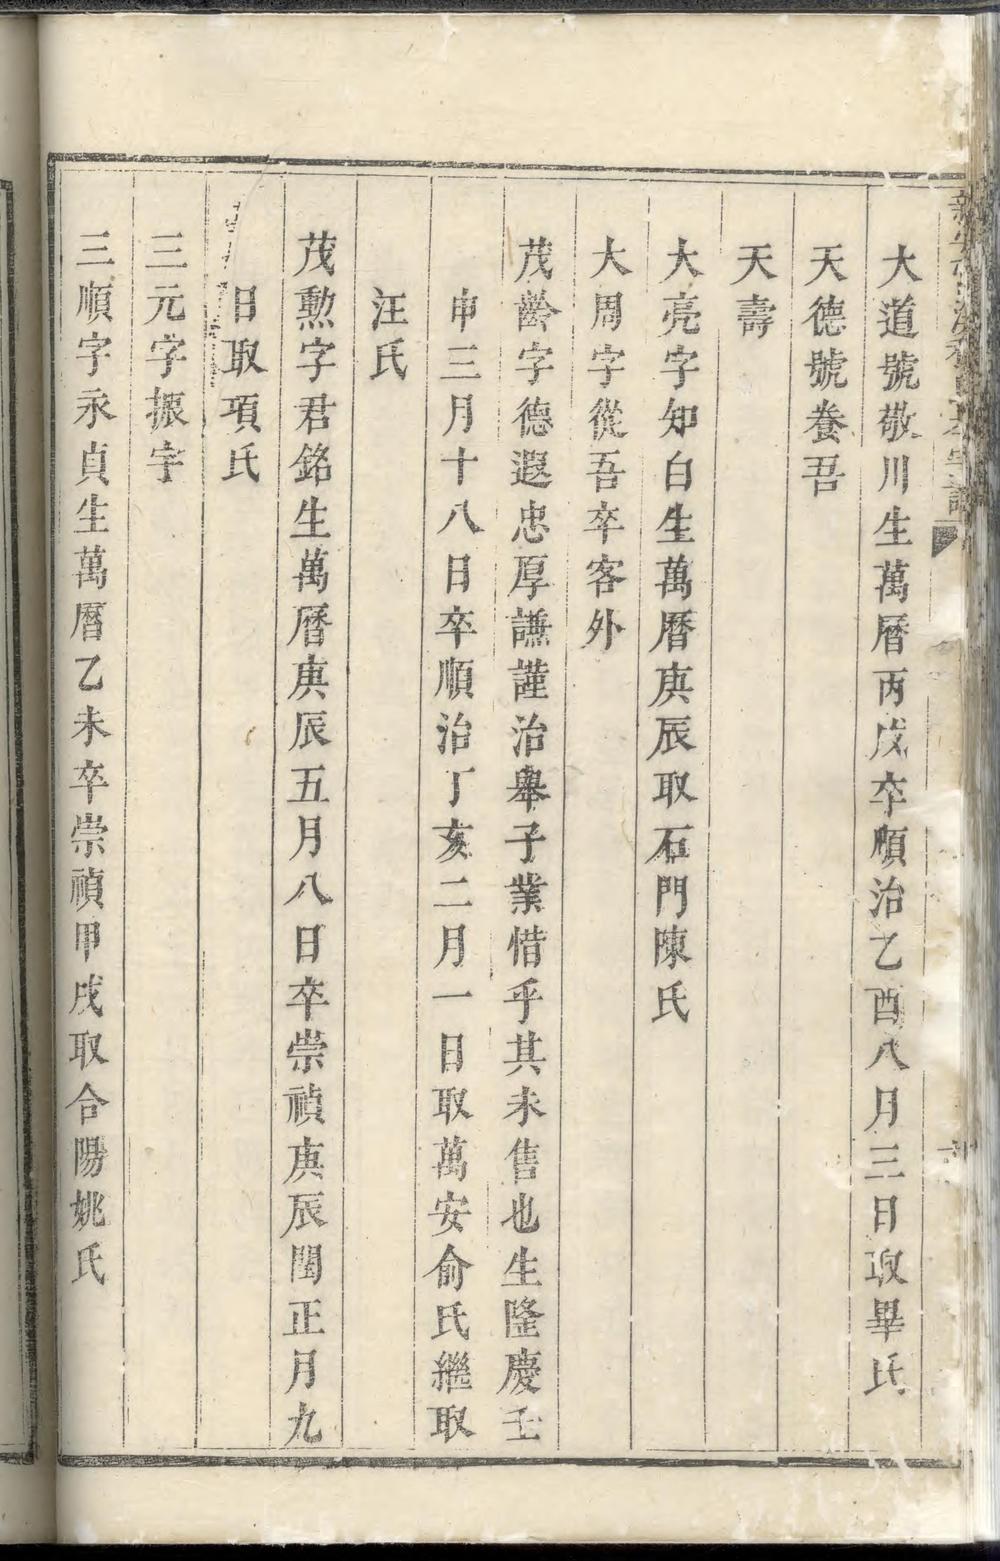 大道號敬川生萬曆丙戌卒順治乙酉八月三日取畢氏
天德號養吾
天壽
大亮字知白生萬曆庚辰取石門陳氏
大周字從吾卒客外
茂齡字德遐忠厚謙謹治舉子業惜乎其未售也生隆慶壬
申三月十八日卒順治丁亥二月一日取萬安俞氏繼取
汪氏
茂勲字君銘生萬曆庚辰五月八日卒崇禎庚辰閏正月九
日取項氏
三元字振宇
三順字永貞生萬曆乙未卒崇禎甲戌取合陽姚氏